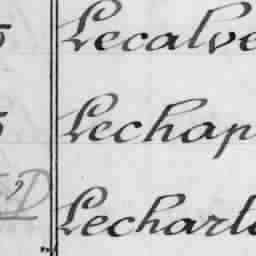 5 Lecalve
5 Lechap
D Lecharl